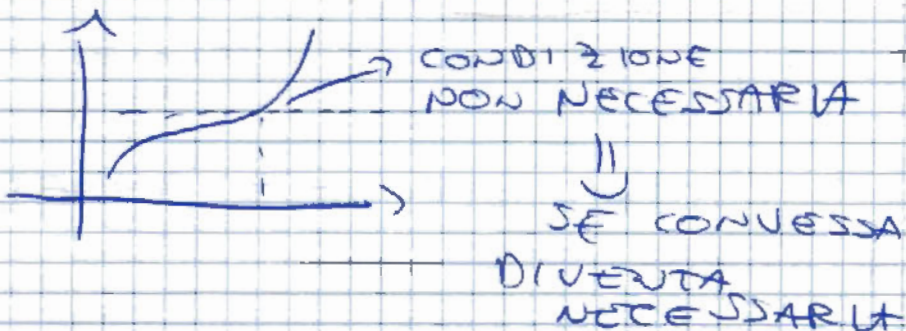 CONDIZIONE
NON NECESSARIA
SE CONVESSA
DIVENTA
NECESSARIA